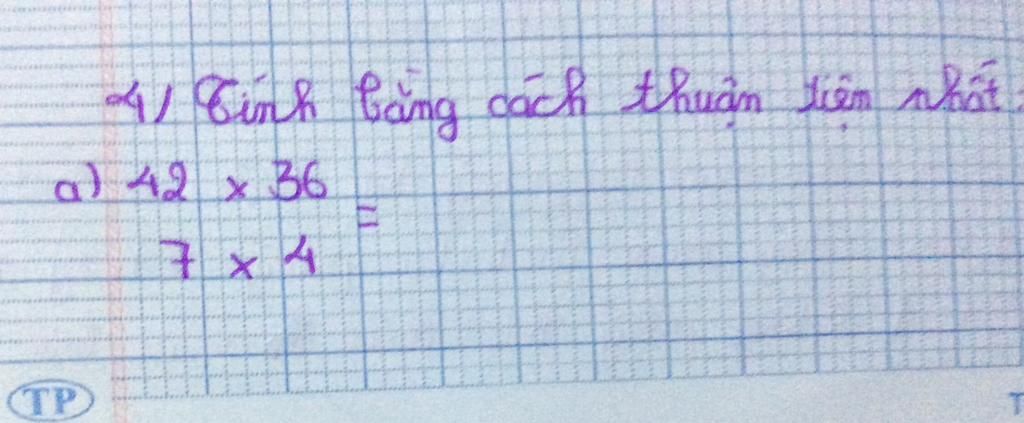 4) Tính bằng cách thuận tiện nhất:
a) 42 x 36
=
7 x 4
TP
T